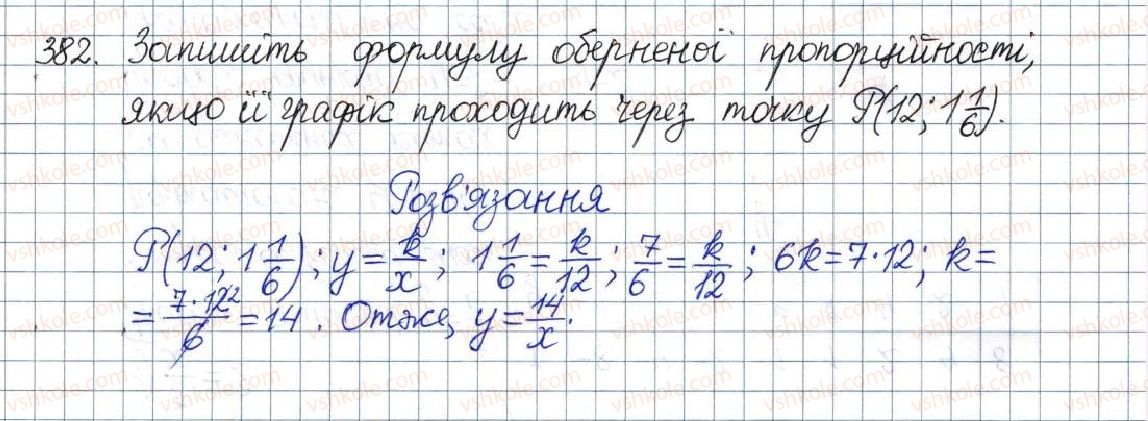 382. Запишіть формулу оберненої пропорційності,
якщо її графік проходить через точку P(12; 1 1/6).
Розв'язання
P(12; 1 1/6); y = k/x; 1 1/6 = k/12; 7/6 = k/12; 6k = 7·12; k =
= 7·12²/6 = 14. Отже, y = 14/x.